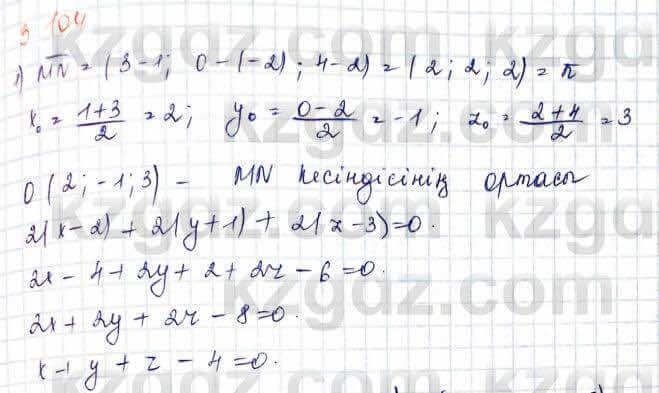 3 104
1) MN = (3-1; 0-(-2); 4-2) = (2; 2; 2) = n
x₀ = 1+3/2 = 2; y₀ = 0-2/2 = -1; z₀ = 2+4/2 = 3
O(2; -1; 3) - MN кесіндісінің ортасы
2(x-2) + 2(y+1) + 2(z-3)=0.
2x - 4 + 2y + 2 + 2z - 6 = 0.
2x + 2y + 2z - 8 = 0.
x + y + z - 4 = 0.
kzgdz.com